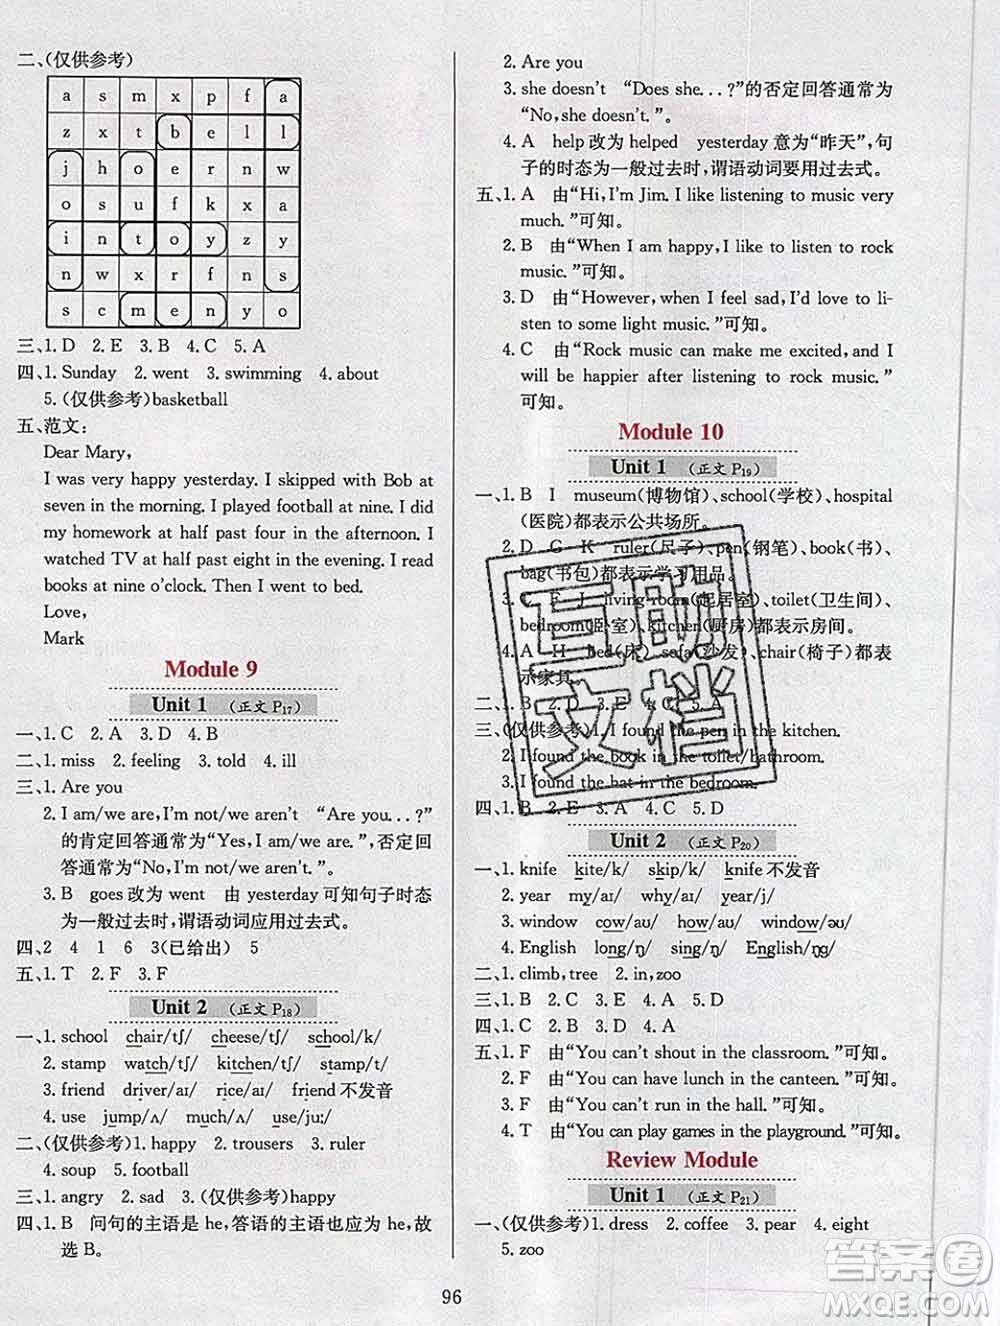 二、(仅供参考)
a s m x p f a
z x t b e l l
j h o e r k l
o s u f k x a
i n t o y z i
n w s r e x s
s c m e n y o
三、1. D 2. E 3. B 4. C 5. A
四、1. Sunday 2. went 3. swimming 4. about
5. (仅供参考)basketball
五、范文:
Dear Mary,
I was very happy yesterday. I skipped with Bob at
seven in the morning. I played football at nine. I did
my homework at half past four in the afternoon. I
watched TV at half past eight in the evening. I read
books at nine o'clock. Then I went to bed.
Love,
Mark
Module 9
Unit 1 (正文 P17)
一、1. C 2. A 3. D 4. B
二、1. miss 2. feeling 3. told 4. ill
三、1. Are you
2. I am/we are, I'm not/we aren't “Are you. . . ?”
的肯定回答通常为“Yes, I am/we are.”, 否定回
答通常为“No, I'm not/we aren't.”。
3. B goes改为went 由 yesterday 可知句子时态
为一般过去时,谓语动词应用过去式。
四、2 4 1 6 3(已给出) 5
五、1. T 2. F 3. F
Unit 2 (正文 P18)
一、1. school chair/tʃ/ cheese/tʃ/ school/k/
2. stamp watch/tʃ/ kitchen/tʃ/ stamp/t/
3. friend driver/aɪ/ rice/aɪ/ friend不发音
4. use jump/ʌ/ much/ʌ/ use/juː/
二、(仅供参考)1. happy 2. trousers 3. ruler
4. soup 5. football
三、1. angry 2. sad 3. (仅供参考)happy
四、1. B 问句的主语是 he, 答语的主语也应为 he, 故
选 B。
2. Are you
3. she doesn't “Does she. . . ?”的否定回答通常为
“No, she doesn't.”。
4. A help改为helped yesterday 意为“昨天”, 句
子的时态为一般过去时,谓语动词要用过去式。
五、1. A 由“Hi, I'm Jim. I like listening to music very
much.”可知。
2. B 由“When I am happy, I like to listen to rock
music.”可知。
3. D 由“However, when I feel sad, I'd love to lis-
ten to some light music.”可知。
4. C 由“Rock music can make me excited, and I
will be happier after listening to rock music.”
可知。
Module 10
Unit 1 (正文 P19)
一、1. B I museum(博物馆)、school(学校)、hospital
(医院)都表示公共场所。
2. D G K ruler(尺子)、pen(钢笔)、book(书)、
bag(书包)都表示学习用品。
3. C F J living room(起居室)、toilet(卫生间)、
bedroom(卧室)、kitchen(厨房)都表示房间。
4. A H bed(床)、sofa(沙发)、chair(椅子)都表
示家具。
二、1. B 2. D 3. C 4. C 5. A
三、(仅供参考)1. I found the pen in the kitchen.
2. I found the book in the toilet/bathroom.
3. I found the hat in the bedroom.
四、1. B 2. E 3. A 4. C 5. D
Unit 2 (正文 P20)
一、1. knife kite/k/ skip/k/ knife不发音
2. year my/aɪ/ why/aɪ/ year/j/
3. window cow/aʊ/ how/aʊ/ window/əʊ/
4. English long/ŋ/ sing/ŋ/ English/ŋg/
二、1. climb, tree 2. in, zoo
三、1. C 2. B 3. D 4. A
四、1. C 2. B 3. A 4. D
五、1. F 由“You can't shout in the classroom.”可知。
2. F 由“You can have lunch in the canteen.”可知。
3. F 由“You can't run in the hall.”可知。
4. T 由“You can play games in the playground.”可知。
Review Module
Unit 1 (正文 P21)
一、(仅供参考)1. dress 2. coffee 3. pear 4. eight
5. zoo
96
互助
文档
答案圈
MXQE.COM